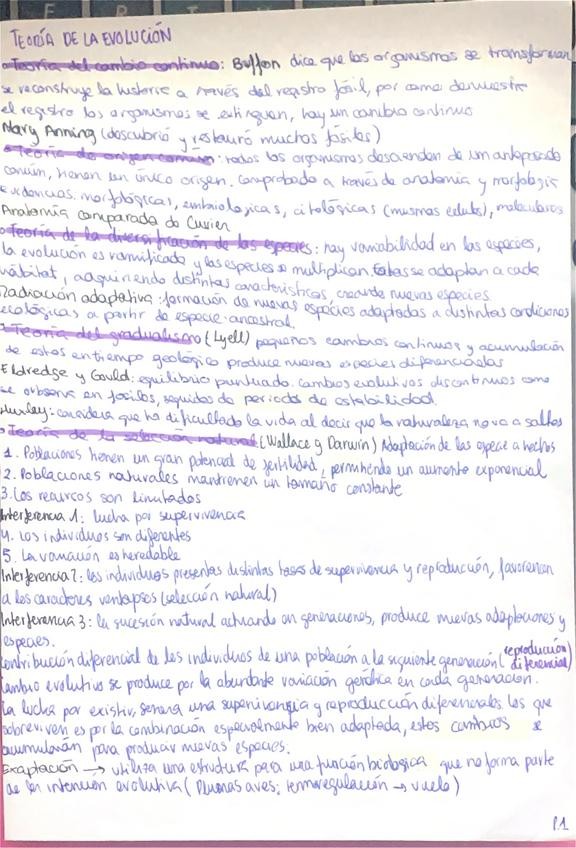 TEORÍA DE LA EVOLUCIÓN
• Teoría del cambio continuo: Buffon dice que los organismos se transforman
se reconstruye la historia a través del registro fósil, por como demuestra
el registro los organismos se extinguen, hay un cambio continuo
Mary Anning (descubrió y restauró muchos fósiles)
• Teoría de origen común: todos los organismos descienden de un antepasado
común, tienen un único origen. Comprobado a través de anatomía y morfología
Evidencias: morfológicas, embriologicas, citológicas (mismas células), moleculares
Anatomía comparada de Cuvier
• Teoría de la diversificación de las especies: hay variabilidad en las especies,
la evolución es ramificada y las especies se multiplican. Estas se adaptan a cada
hábitat, adquiriendo distintas características, creando nuevas especies
Radiación adaptativa: formación de nuevas especies adaptadas a distintas condiciones
ecológicas a partir de especie ancestral.
• Teoría del gradualismo (Lyell) pequeños cambios continuos y acumulación
de estos en tiempo geológico produce nuevas especies diferenciadas
Eldredge y Gould: equilibrio puntuado. Cambios evolutivos discontinuos como
se observa en fósiles, seguidos de periodos de estabilidad.
Huxley: considera que ha dificultado la vida al decir que la naturaleza no va a saltos
• Teoría de la selección natural (Wallace y Darwin) Adaptación de las especie a hechos
1. Poblaciones tienen un gran potencial de fertilidad, permitiendo un aumento exponencial
2. Poblaciones naturales mantienen un tamaño constante
3. Los recursos son limitados
Interferencia 1: lucha por supervivencia
4. Los individuos son diferentes
5. La variación es heredable
Interferencia 2: los individuos presentas distintas tasas de supervivencia y reproducción, favorecen
a los caracteres ventajosos (selección natural)
Interferencia 3: la sucesión natural actuando en generaciones, produce nuevas adaptaciones y
especies.
Contribución diferencial de los individuos de una población a la siguiente generación (reproducción diferencial)
Cambio evolutivo se produce por la abundante variación genética en cada generación.
La lucha por existir, genera una supervivencia y reproducción diferenciales, los que
sobreviven es por la combinación especialmente bien adaptada, estos cambios se
acumularán para producir nuevas especies.
Exaptación → utiliza una estructura para una función biológica que no forma parte
de la intención evolutiva (Plumas aves: termoregulación → vuelo)
P.1